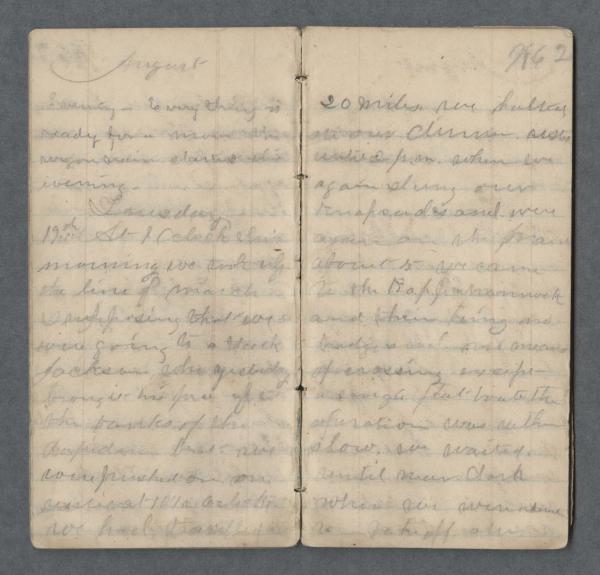 August
Evening - Every thing is
ready for a move the
wagon train started this
evening.
Tuesday
19th At 1 Oclock this
morning we took up
the line of march
Supposing that we
were going to attack
Jackson who yesterday
brought his force up to
the banks of the
Rapidan but we
were pushed on on
until at 10 1/2 Oclock
we had travelled
1862
20 miles. we halted
to our dinner rested
until 2 p.m. when we
again slung our
knapsacks and were
again on the march
about 5 we came
to the Rappahannock
and their being no
bridges and no means
of crossing except
a single flat boat the
operation was rather
slow. we waited
until near dark
when we were
to take off our